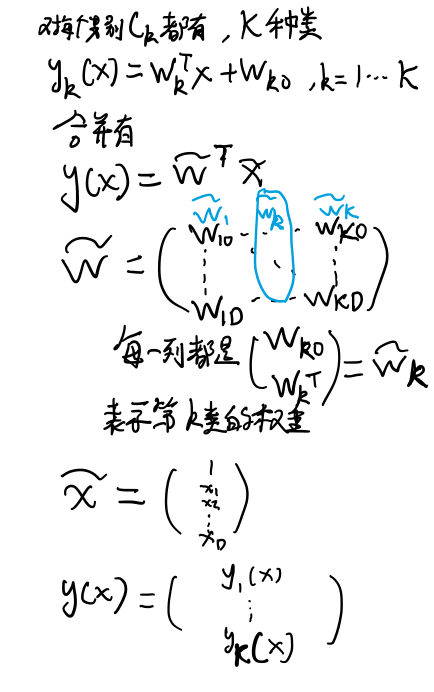 对每个类别Cₖ都有，K种类
yₖ(x) = wₖᵀx + wₖ₀ , k = 1 ⋯ K
合并有
y(x) = w̃ᵀ x̃
w̃₁ w̃ₖ w̃K
w̃ = ( w₁₀ ⋯ wK₀
⋮ ⋱ ⋮
w₁D ⋯ wKD )
每一列都是 ( wₖ₀
wₖᵀ ) = w̃ₖ
表示第k类的权重
x̃ = ( 1
x₁
x₂
⋮
xD )
y(x) = ( y₁(x)
⋮
yK(x) )